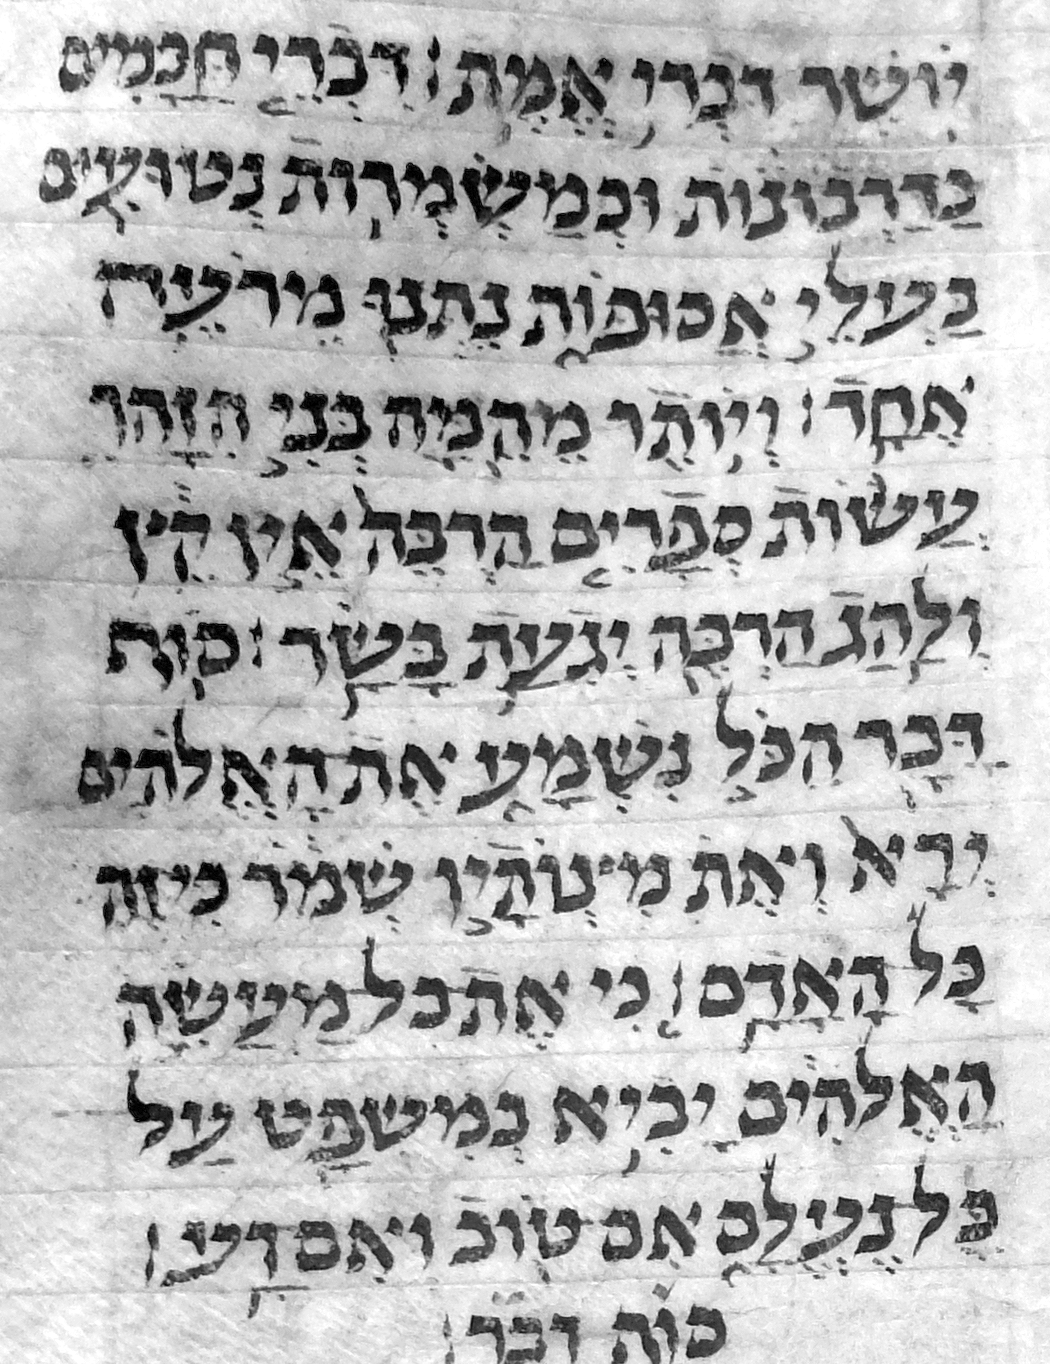 יוֹשֶׁר דִּבְרֵי אֱמֶת׃ דִּבְרֵי חֲכָמִים
כַּדַּרְבוֹנוֹת וּכְמַשְׂמְרוֹת נְטוּעִים
בַּעֲלֵי אֲסוּפּוֹת נִתְּנוּ מֵרֹעֶה
אֶחָד׃ וְיוֹתֵר מֵהֵמָּה בְּנִי הִזָּהֵר
עֲשׂוֹת סְפָרִים הַרְבֵּה אֵין קֵץ
וְלַהַג הַרְבֵּה יְגִעַת בָּשָׂר׃ סוֹף
דָּבָר הַכֹּל נִשְׁמָע אֶת הָאֱלֹהִים
יְרָא וְאֶת מִצְוֹתָיו שְׁמֹר כִּי זֶה
כָּל הָאָדָם׃ כִּי אֶת כָל מַעֲשֶׂה
הָאֱלֹהִים יָבִיא בְמִשְׁפָּט עַל
כָּל נֶעֱלָם אִם טוֹב וְאִם רָע׃
סוֹף דבר׃